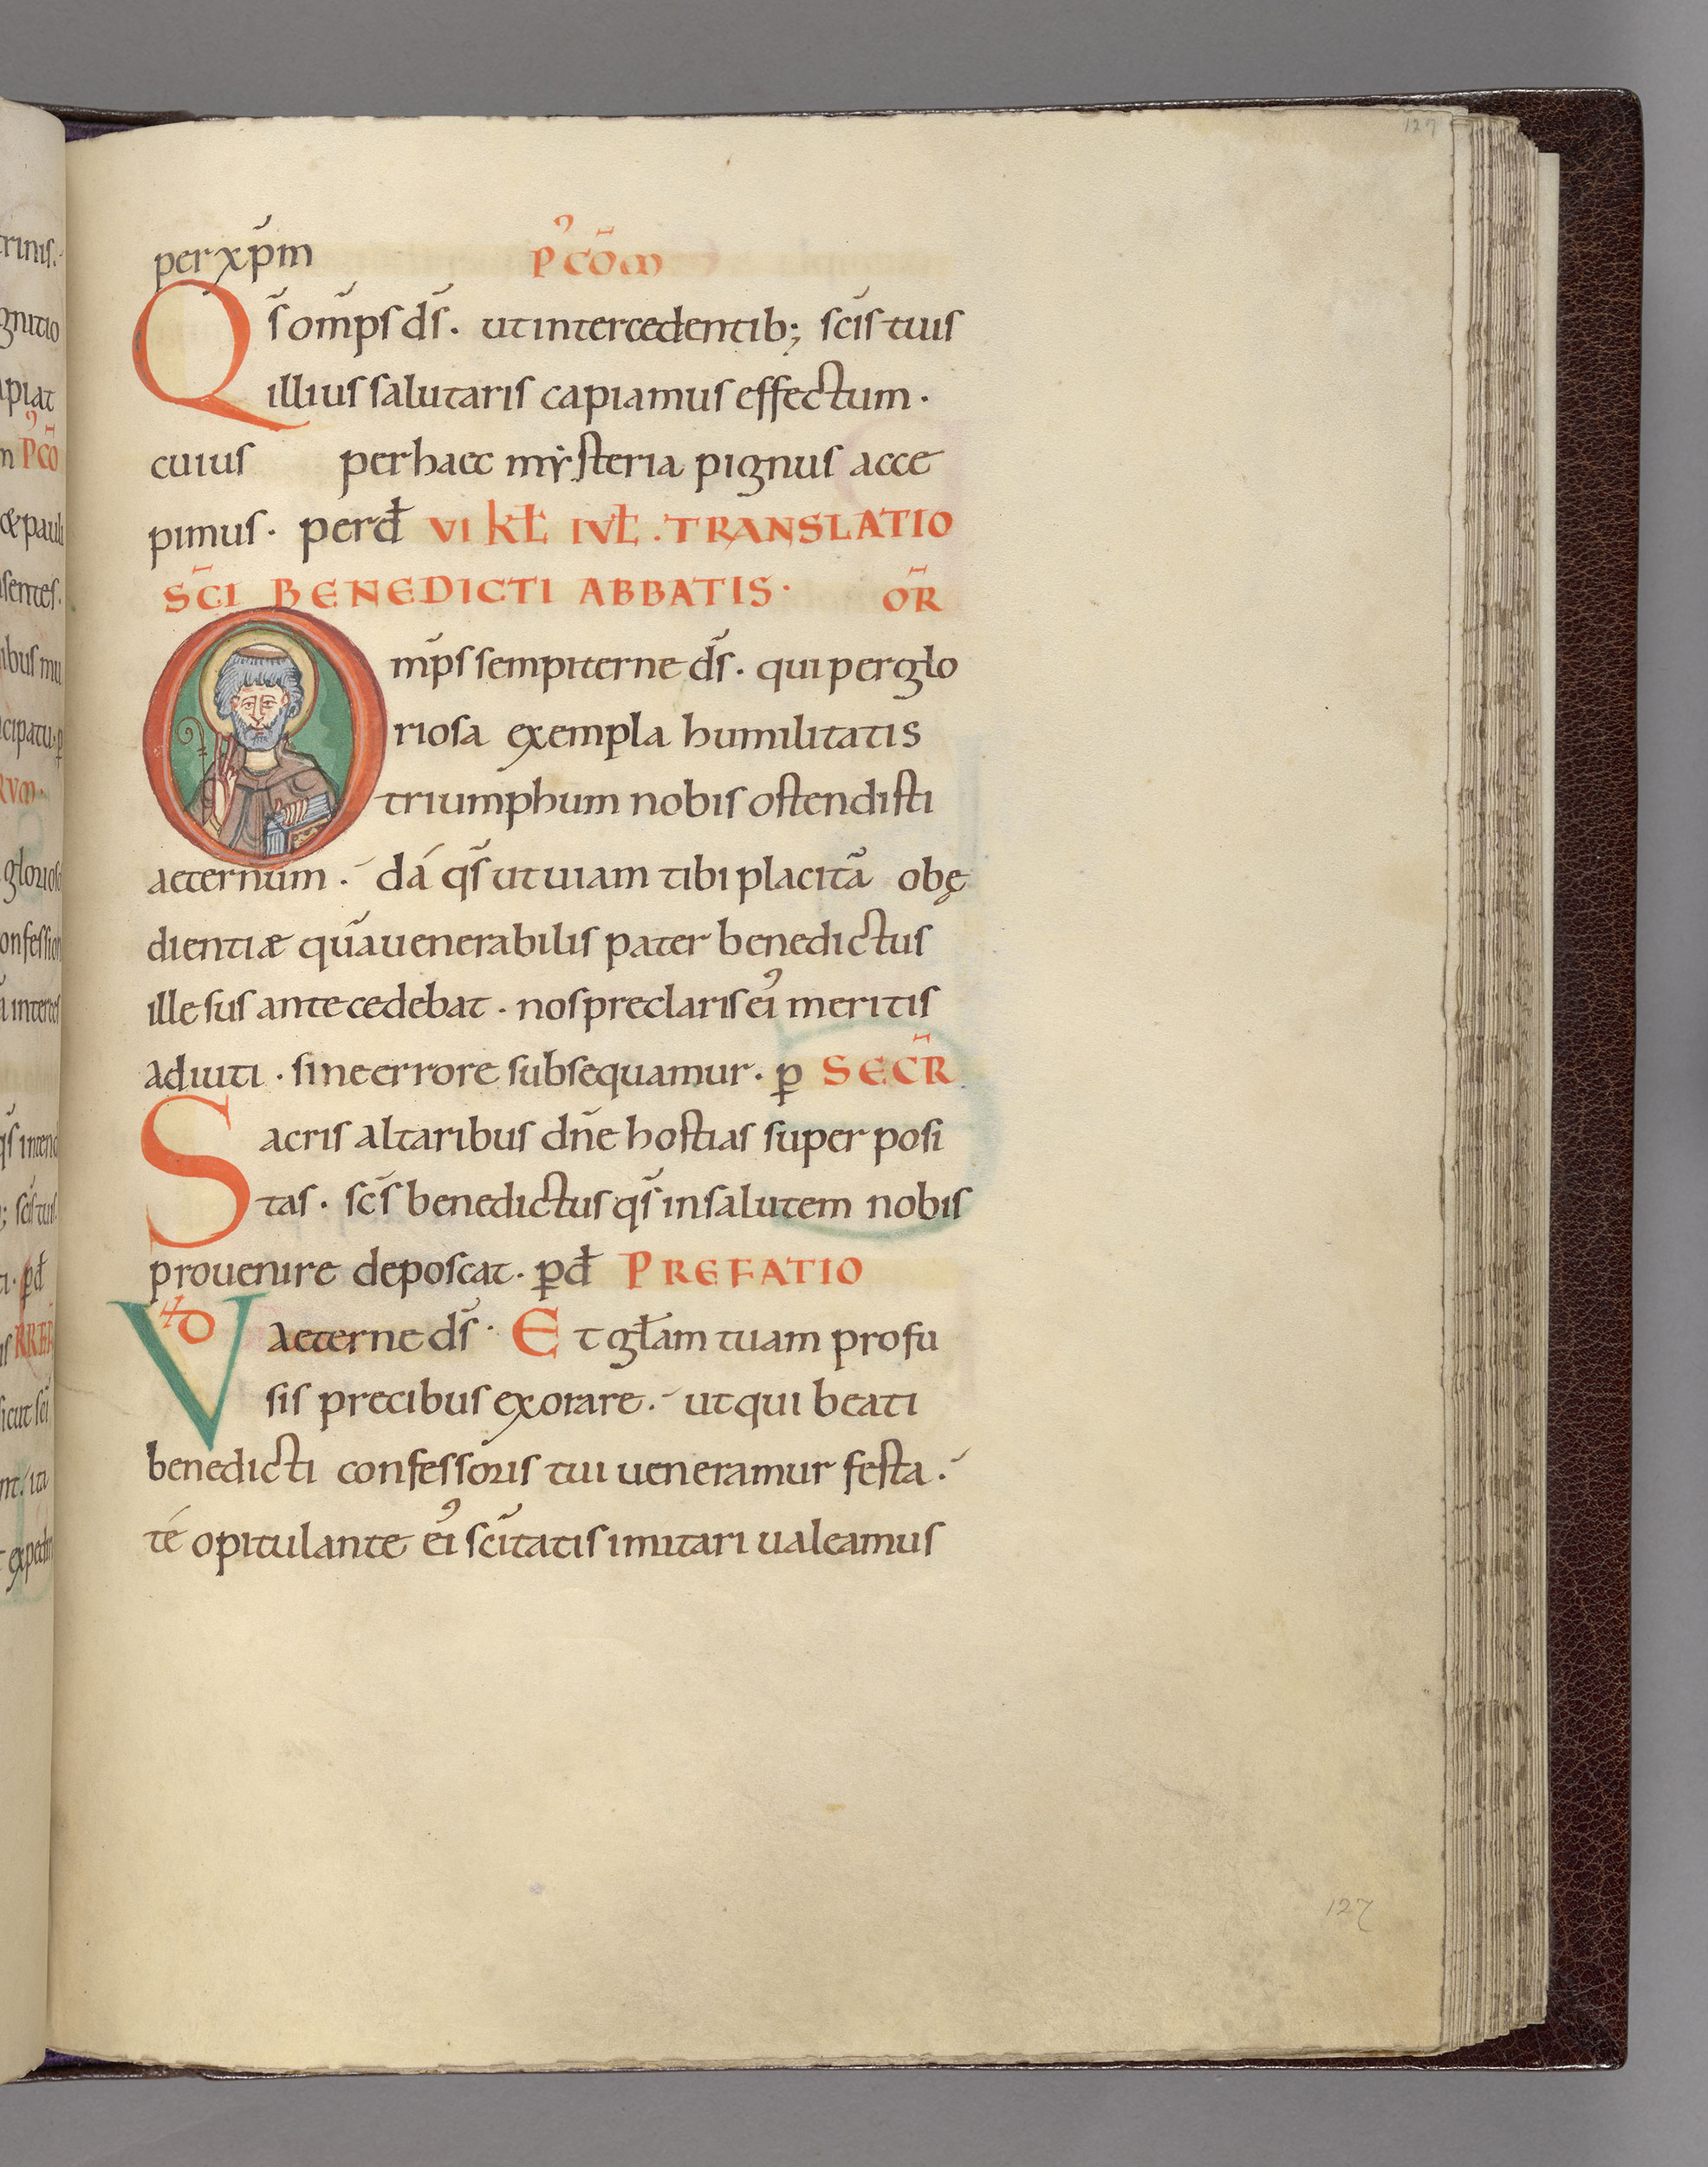 127
per xp̃m P᾽cõm
Qs̃ om̃ps ds̃. ut intercedentib; scĩs tuis
illius salutaris capiamus effectum.
cuius per haec mẏsteria pignus acce
pimus. per dł VI kł IVł. TRANSLATIO
SC̃I BENEDICTI ABBATIS. OR̃
Om̃ps sempiterne ds̃. qui per glo
riosa exempla humilitatis
triumphum nobis ostendisti
aeternum. dá qs̃ ut uiam tibi placitã obę
dientiæ quã uenerabilis pater benedictus
ille sus antecedebat. nos preclaris ei᾽ meritis
adiuti. sine errore subsequamur. ꝑ SECR̃
Sacris altaribus dñe hostias super posi
tas. scs̃ benedictus qs̃ in salutem nobis
prouenire deposcat. ꝑđ PREFATIO
VD aeterne ds̃. Et głam tuam profu
sis precibus exorare. ut qui beati
benedicti confessoris tui ueneramur festa.
té opitulante ei᾽ scĩtatis imitari ualeamus
127